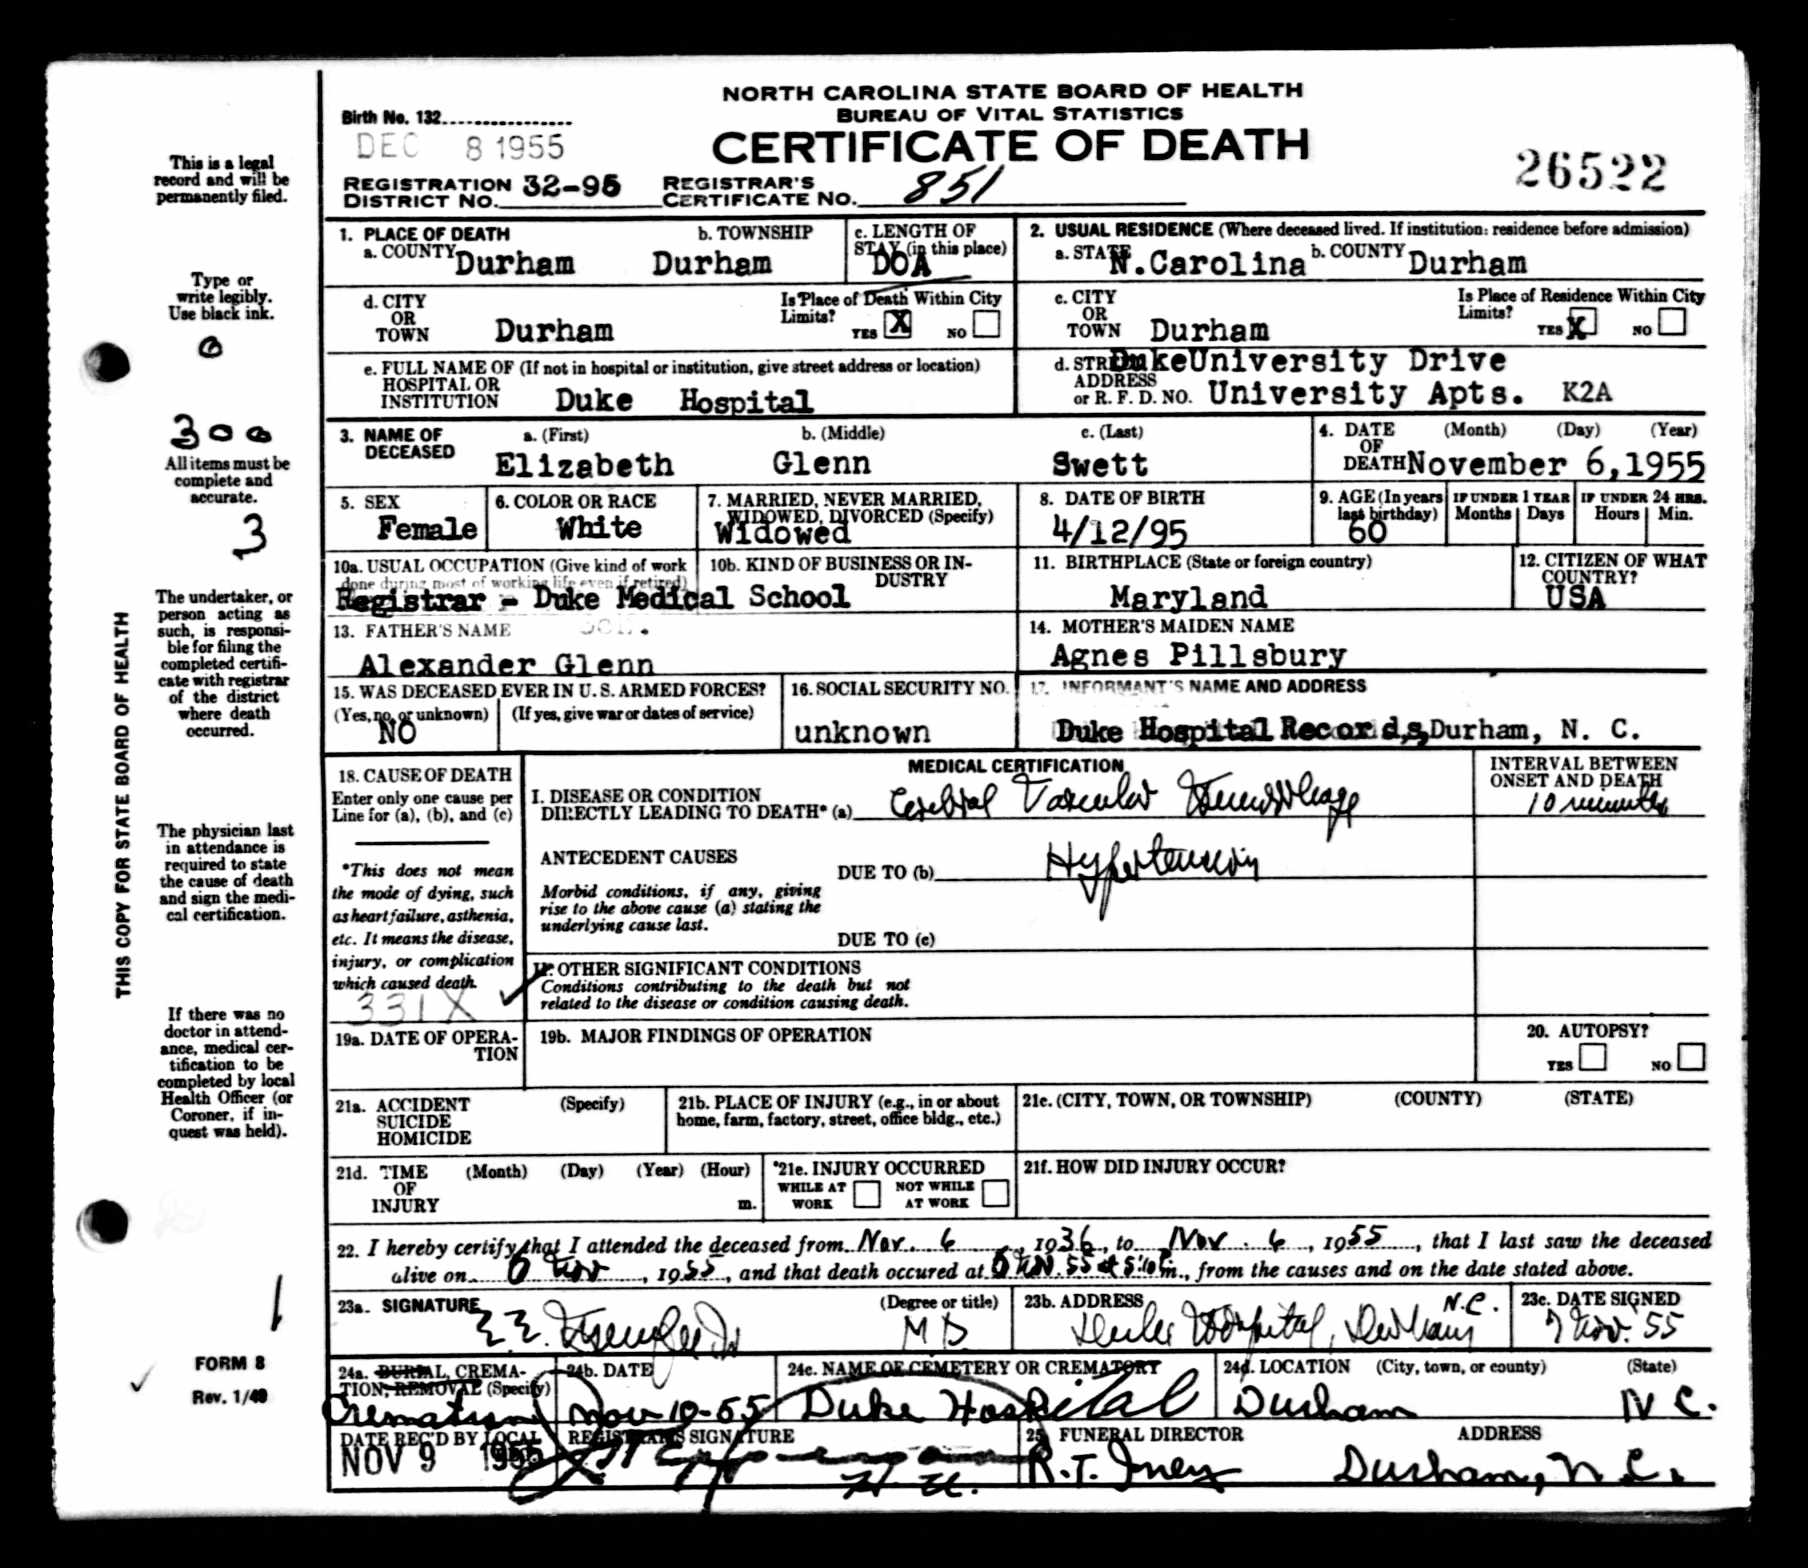 NORTH CAROLINA STATE BOARD OF HEALTH
BUREAU OF VITAL STATISTICS
CERTIFICATE OF DEATH
Birth No. 132
DEC 8 1955
26522
REGISTRATION DISTRICT NO. 32-95
REGISTRAR'S CERTIFICATE NO. 851
This is a legal
record and will be
permanently filed.
Type or
write legibly.
Use black ink.
0
300
All items must be
complete and
accurate.
3
The undertaker, or
person acting as
such, is responsi-
ble for filing the
completed certifi-
cate with registrar
of the district
where death
occurred.
THIS COPY FOR STATE BOARD OF HEALTH
The physician last
in attendance is
required to state
the cause of death
and sign the medi-
cal certification.
If there was no
doctor in attend-
ance, medical cer-
tification to be
completed by local
Health Officer (or
Coroner, if in-
quest was held).
1
FORM 8
Rev. 1/49
1. PLACE OF DEATH
a. COUNTY Durham
b. TOWNSHIP Durham
c. LENGTH OF STAY (in this place) DOA
2. USUAL RESIDENCE (Where deceased lived. If institution: residence before admission)
a. STATE N.Carolina
b. COUNTY Durham
d. CITY OR TOWN Durham
Is Place of Death Within City Limits? YES X NO
c. CITY OR TOWN Durham
Is Place of Residence Within City Limits? YES X NO
e. FULL NAME OF (If not in hospital or institution, give street address or location)
HOSPITAL OR
INSTITUTION Duke Hospital
d. STREET ADDRESS or R. F. D. NO. DukeUniversity Drive
University Apts. K2A
3. NAME OF DECEASED
a. (First) Elizabeth
b. (Middle) Glenn
c. (Last) Swett
4. DATE OF DEATH (Month) (Day) (Year) November 6,1955
5. SEX Female
6. COLOR OR RACE White
7. MARRIED, NEVER MARRIED, WIDOWED, DIVORCED (Specify) Widowed
8. DATE OF BIRTH 4/12/95
9. AGE (In years last birthday) 60
IF UNDER 1 YEAR Months Days
IF UNDER 24 HRS. Hours Min.
10a. USUAL OCCUPATION (Give kind of work done during most of working life even if retired)
10b. KIND OF BUSINESS OR INDUSTRY
Registrar - Duke Medical School
11. BIRTHPLACE (State or foreign country) Maryland
12. CITIZEN OF WHAT COUNTRY? USA
13. FATHER'S NAME
Alexander Glenn
14. MOTHER'S MAIDEN NAME
Agnes Pillsbury
15. WAS DECEASED EVER IN U. S. ARMED FORCES?
(Yes, no, or unknown) NO
(If yes, give war or dates of service)
16. SOCIAL SECURITY NO.
unknown
17. INFORMANT'S NAME AND ADDRESS
Duke Hospital Records, Durham, N. C.
18. CAUSE OF DEATH
Enter only one cause per
Line for (a), (b), and (c)
*This does not mean
the mode of dying, such
as heart failure, asthenia,
etc. It means the disease,
injury, or complication
which caused death.
331X
MEDICAL CERTIFICATION
INTERVAL BETWEEN ONSET AND DEATH
I. DISEASE OR CONDITION
DIRECTLY LEADING TO DEATH* (a) Cerebral Vascular Hemorrhage
10 minutes
ANTECEDENT CAUSES
DUE TO (b) Hypertension
Morbid conditions, if any, giving
rise to the above cause (a) stating the
underlying cause last.
DUE TO (c)
II. OTHER SIGNIFICANT CONDITIONS
Conditions contributing to the death but not
related to the disease or condition causing death.
19a. DATE OF OPERATION
19b. MAJOR FINDINGS OF OPERATION
20. AUTOPSY?
YES NO
21a. ACCIDENT SUICIDE HOMICIDE (Specify)
21b. PLACE OF INJURY (e.g., in or about home, farm, factory, street, office bldg., etc.)
21c. (CITY, TOWN, OR TOWNSHIP) (COUNTY) (STATE)
21d. TIME OF INJURY (Month) (Day) (Year) (Hour) m.
21e. INJURY OCCURRED
WHILE AT WORK NOT WHILE AT WORK
21f. HOW DID INJURY OCCUR?
22. I hereby certify that I attended the deceased from Nov. 6, 1936, to Nov. 6, 1955, that I last saw the deceased
alive on 6 Nov, 1955, and that death occured at 6 Nov. 55 at 5:10 P.m., from the causes and on the date stated above.
23a. SIGNATURE (Degree or title) M D
23b. ADDRESS Duke Hospital, Durham N.C.
23c. DATE SIGNED 7 Nov. 55
24a. BURIAL, CREMATION, REMOVAL (Specify) Cremation
24b. DATE Nov-10-55
24c. NAME OF CEMETERY OR CREMATORY Duke Hospital
24d. LOCATION (City, town, or county) (State) Durham N C.
DATE REC'D BY LOCAL
NOV 9 1955
REGISTRAR'S SIGNATURE
25. FUNERAL DIRECTOR ADDRESS
R.T. Durham, N.C.